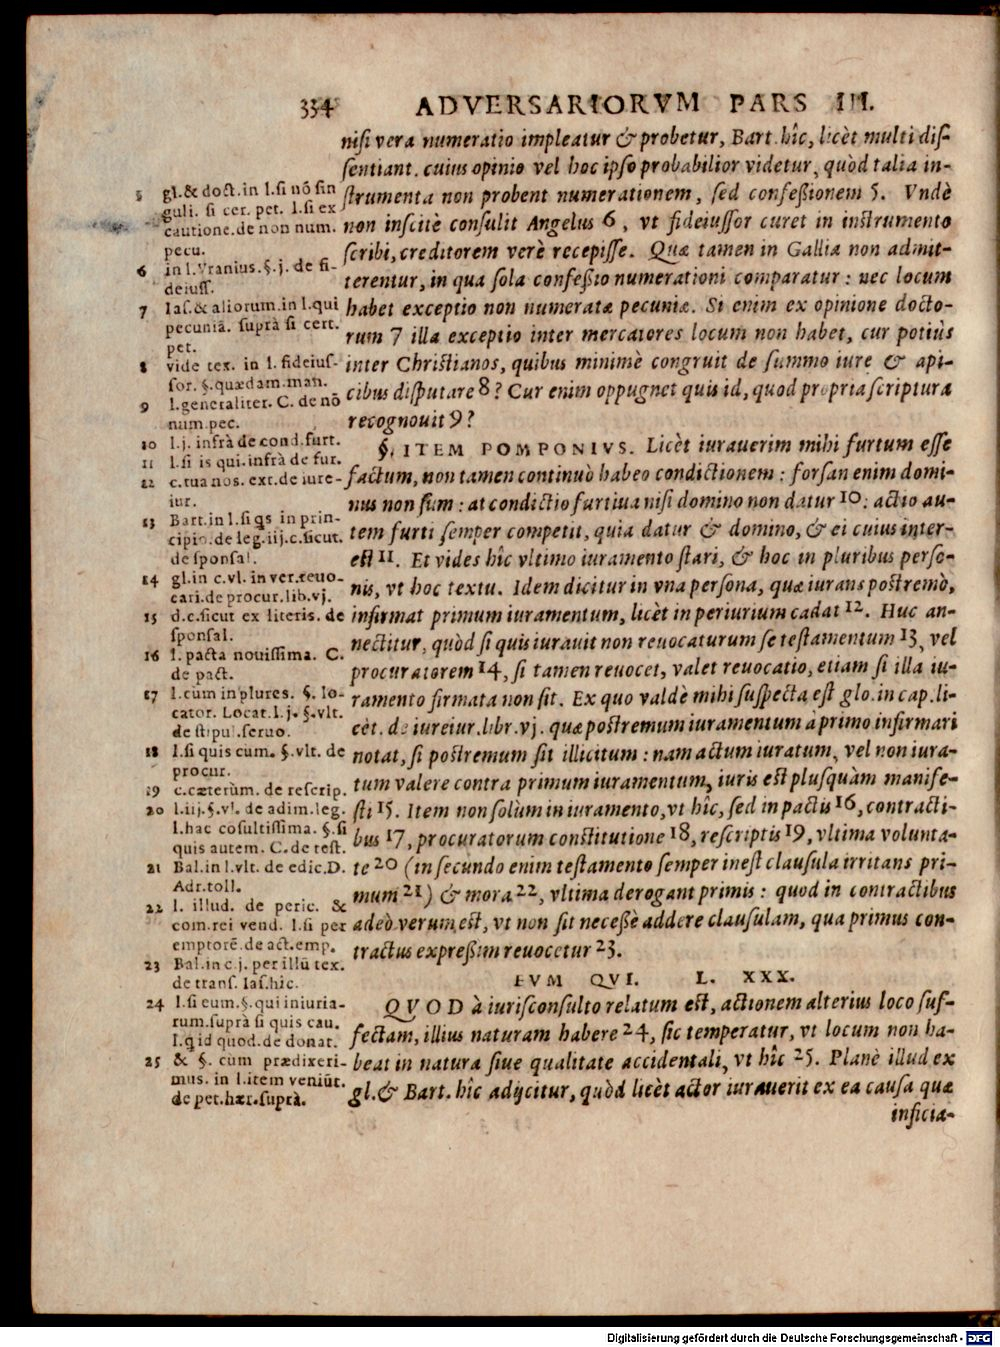 334 ADVERSARIORVM PARS III.
nisi vera numeratio impleatur & probetur, Bart. hîc, licèt multi dis-
sentiant. cuius opinio vel hoc ipso probabilior videtur, quòd talia in-
strumenta non probent numerationem, sed confeßionem 5. Vndè
non inscitè consulit Angelus 6, vt fideiussor curet in instrumento
scribi, creditorem verè recepisse. Quæ tamen in Gallia non admit-
terentur, in qua sola confeßio numerationi comparatur: nec locum
habet exceptio non numeratæ pecuniæ. Si enim ex opinione docto-
rum 7 illa exceptio inter mercatores locum non habet, cur potiùs
inter Christianos, quibus minimè congruit de summo iure & api-
cibus disputare 8? Cur enim oppugnet quis id, quod propria scriptura
recognouit 9?
§. ITEM POMPONIVS. Licèt iurauerim mihi furtum esse
factum, non tamen continuò habeo condictionem: forsan enim domi-
nus non sum: at condictio furtiua nisi domino non datur 10: actio au-
tem furti semper competit, quia datur & domino, & ei cuius inter-
est 11. Et vides hîc vltimo iuramento stari, & hoc in pluribus perso-
nis, vt hoc textu. Idem dicitur in vna persona, quæ iurans postremò,
infirmat primum iuramentum, licèt in periurium cadat 12. Huc an-
nectitur, quòd si quis iurauit non reuocaturum se testamentum 13, vel
procuratorem 14, si tamen reuocet, valet reuocatio, etiam si illa iu-
ramento firmata non sit. Ex quo valdè mihi suspecta est glo. in cap. li-
cèt. de iureiur. libr. vj. quæ postremum iuramentum à primo infirmari
notat, si postremum sit illicitum: nam actum iuratum, vel non iura-
tum valere contra primum iuramentum, iuris est plusquàm manife-
sti 15. Item non solùm in iuramento, vt hîc, sed in pactis 16, contracti-
bus 17, procuratorum constitutione 18, rescriptis 19, vltima volunta-
te 20 (in secundo enim testamento semper inest clausula irritans pri-
mum 21) & mora 22, vltima derogant primis: quod in contractibus
adeò verum est, vt non sit neceßè addere clausulam, qua primus con-
tractus expreßim reuocetur 23.
EVM QVI. L. XXX.
QVOD à iurisconsulto relatum est, actionem alterius loco suf-
fectam, illius naturam habere 24, sic temperatur, vt locum non ha-
beat in natura siue qualitate accidentali, vt hîc 25. Planè illud ex
gl. & Bart. hîc adijcitur, quòd licèt actor iurauerit ex ea causa quæ
inficia-
5 gl. & doct. in l. si nō sin
guli. si cer. pet. l. si ex
cautione. de non num.
pecu.
6 in l. Vranius. §. j. de fi-
deiuss.
7 Ias. & aliorum. in l. qui
pecuniā. suprà si cert.
pet.
8 vide tex. in l. fideius-
sor. §. quædam. man.
9 l. generaliter. C. de nō
num. pec.
10 l. j. infrà de cond. furt.
11 l. si is qui. infrà de fur.
12 c. tua nos. ext. de iure-
iur.
13 Bart. in l. si qs in prin-
cipio. de leg. iij. c. sicut.
de sponsal.
14 gl. in c. vl. in ver. reuo-
cari. de procur. lib. vj.
15 d. c. sicut ex literis. de
sponsal.
16 l. pacta nouissima. C.
de pact.
17 l. cum in plures. §. lo-
cator. Locat. l. j. §. vlt.
de stipul. seruo.
18 l. si quis cum. §. vlt. de
procur.
19 c. cæterùm. de rescrip.
20 l. iij. §. vl. de adim. leg.
l. hac cōsultissima. §. si
quis autem. C. de test.
21 Bal. in l. vlt. de edic. D.
Adr. toll.
22 l. illud. de peric. &
com. rei vend. l. si per
emptorē. de act. emp.
23 Bal. in c. j. per illū tex.
de trans. Ias. hîc.
24 l. si eum. §. qui iniuria-
rum. suprà si quis cau.
l. qid quod. de donat.
25 & §. cùm prædixeri-
mus. in l. item veniūt.
de pet. hær. suprà.
Digitalisierung gefördert durch die Deutsche Forschungsgemeinschaft - DFG